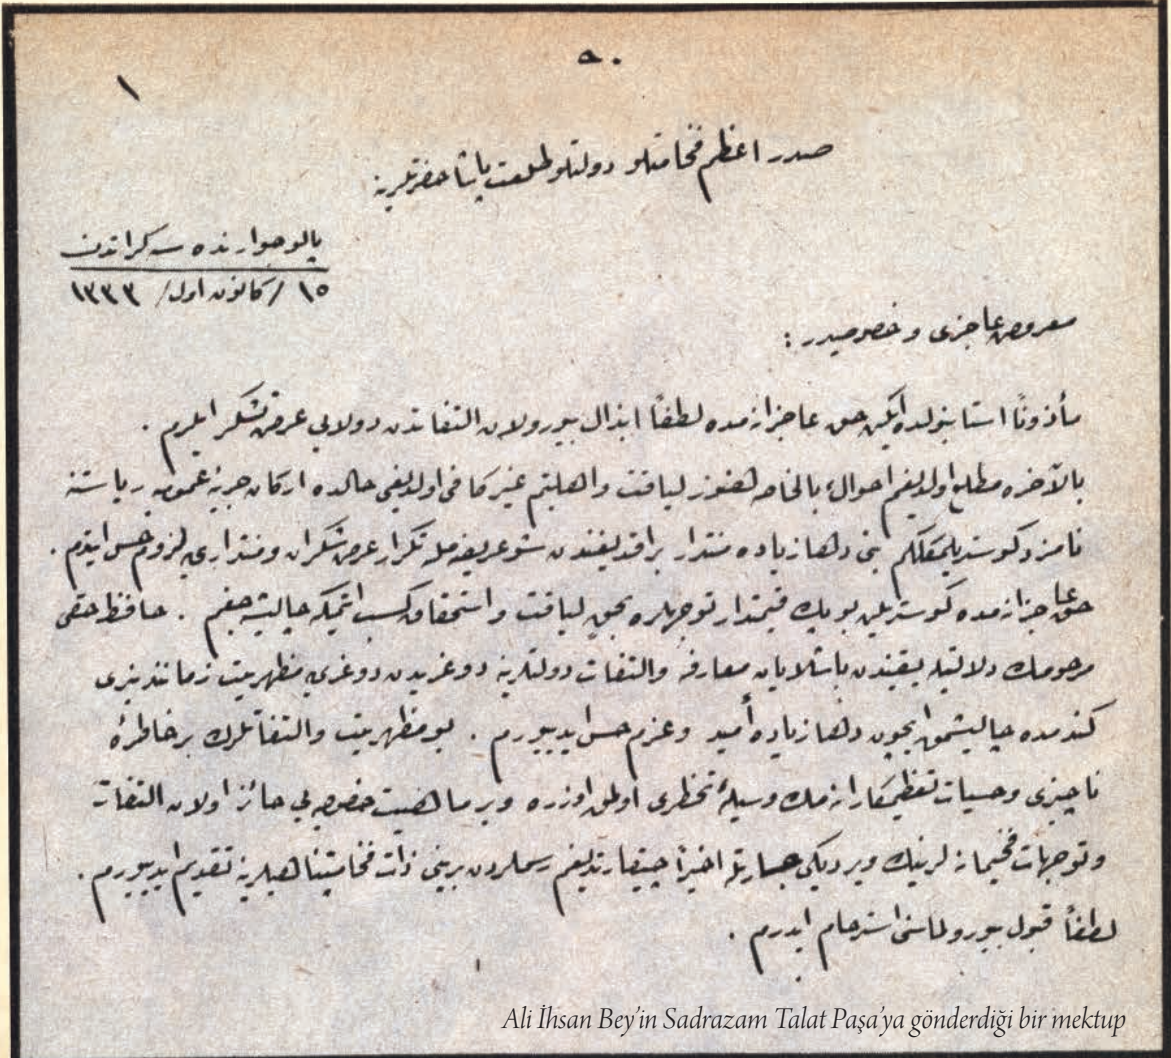 ٥٠
١
صدر اعظم فخامتلو دولتلو طلعت پاشا حضرتلرينه
پالو جوارنده سكراتدن
١٥ / كانون اول / ١٣٣٣
معروض عاجزى و خصوصيدر :
مأذوناً استانبولده ايكن حق عاجزانه مده لطفاً ابذال بيورولان التفاتدن دولايى عرض تشكر ايلرم .
بالآخره مطلع اولديغم احوال، بالخاصه هنوز لياقت و اهليتم غير كافى اولديغى حالده اركان حربيهٔ عموميه رياستنه
نامزد كوستريلمكلكم بنى دها زياده منتدار براقديغندن شو عريضه مله تكرار عرض شكران و منتدارى يه لزوم حس ايتدم .
حق عاجزانه مده كوستريلن بو پك قيمتدار توجهلره بحق لياقت و استحقاق كسب ايتمكه چاليشه جغم . حافظ حقى
مرحومك دلالتيله يقيندن باشلايان معارفه و التفات دولتلرينه دوغريدن دوغرى يه مظهريت زمانندنبرى
كندمده چاليشمق ايچون دها زياده أميد و عزم حس ايدييورم . بو مظهريت و التفاتلرك بر خاطرهٔ
ناچيزى و حسيات تعظيمكارانه مك وسيلهٔ تخطرى اولمق اوزره و بر ماهيت خصوصيه يى حائز اولان التفات
و توجهات فخيمانه لرينك ويرديكى جسارتله اخيراً چيقارتديغم رسملردن برينى ذات فخامتپناهيلرينه تقديم ايدييورم .
لطفاً قبول بيورولماسنى استرحام ايدرم .
Ali İhsan Bey'in Sadrazam Talat Paşa'ya gönderdiği bir mektup